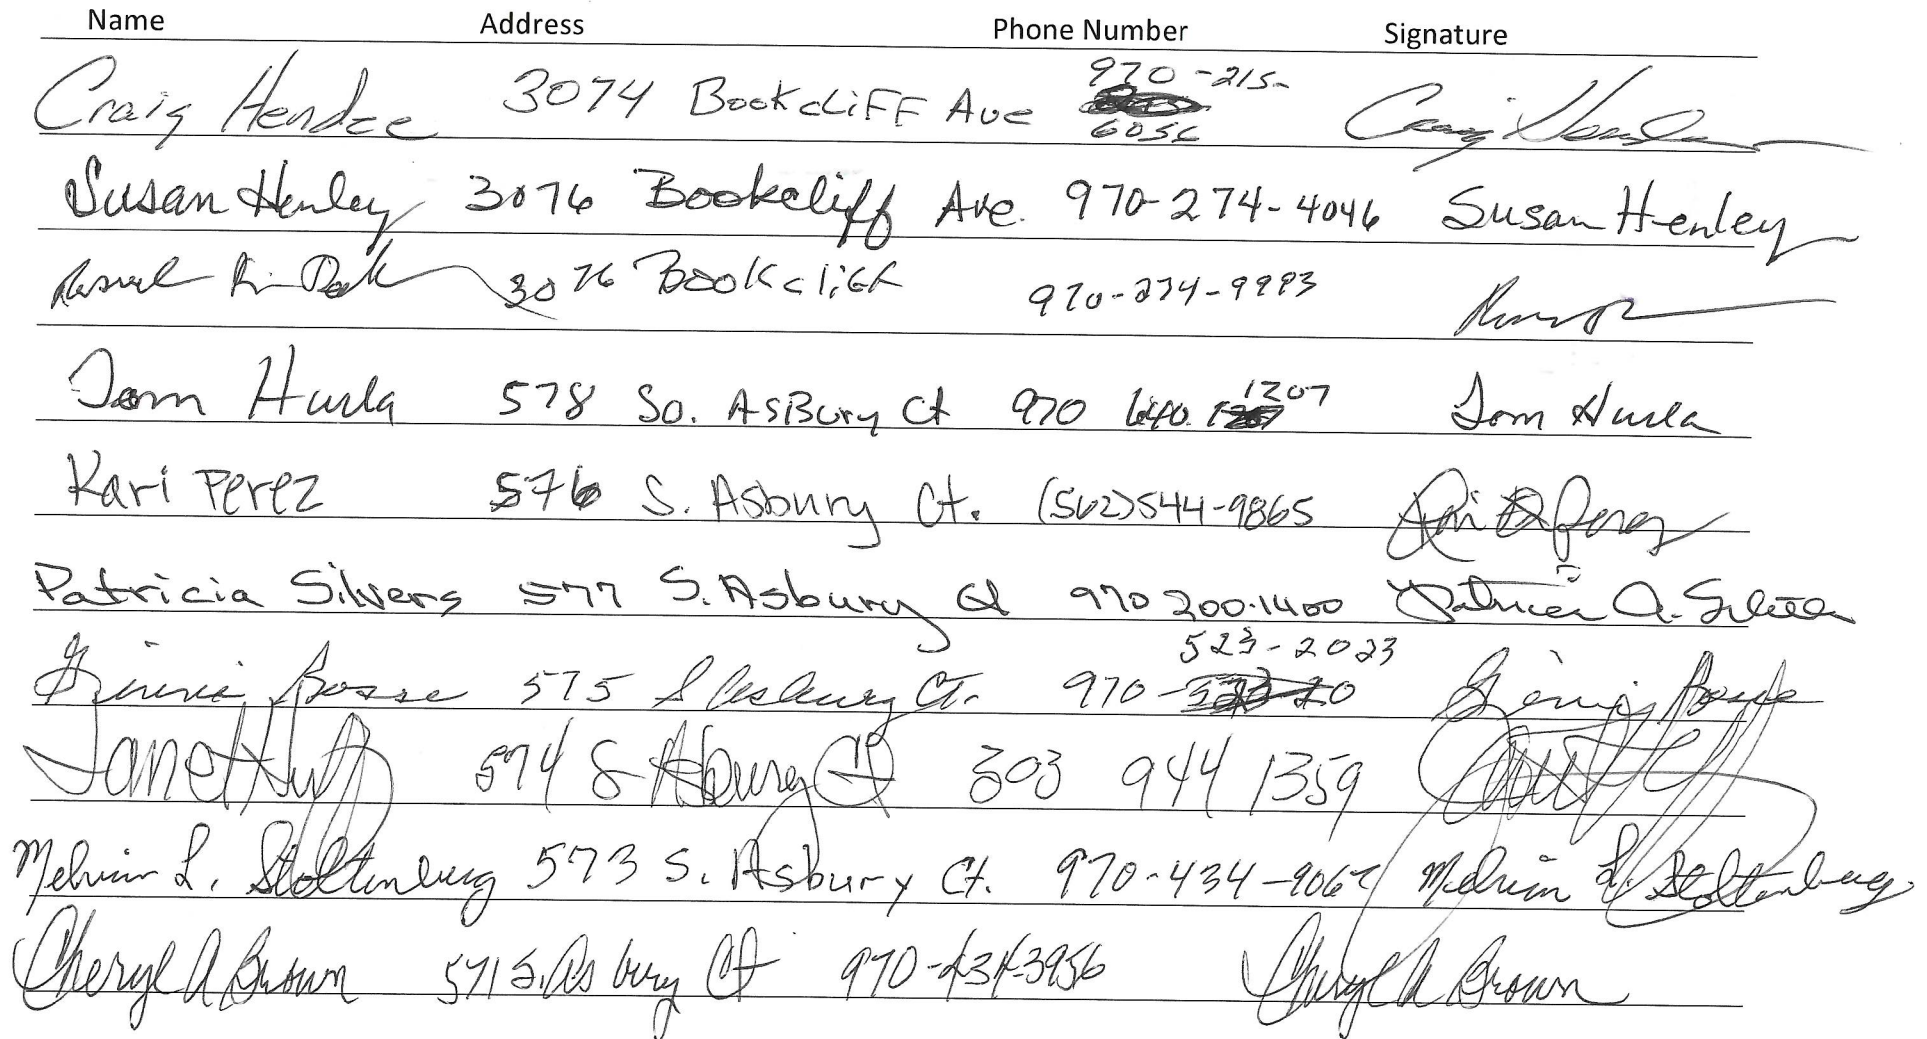 Name Address Phone Number Signature
Craig 3074 BookcliFF Ave 970-215-6056 Craig
Susan Henley 3076 Bookcliff Ave. 970-274-4046 Susan Henley
3076 Bookcliff 970-274-9993
Tom Hurla 578 So. AsBury Ct 970 640 1207 Tom Hurla
Kari Perez 576 S. Asbury Ct. (562)544-9865 Kari Perez
Patricia Silvers 577 S. Asbury Ct 970 200.1400 Patricia A. Silvers
Ginnie Bosse 575 S Asbury Ct. 970-523-2023 Ginnie Bosse
Janet Huff 574 S Asbury Ct 303 944 1359
Melvin L. Stoltenburg 573 S. Asbury Ct. 970-434-9067 Melvin L. Stoltenburg
Cheryl A Brown 571 S. Asbury Ct 970-434-3956 Cheryl A Brown